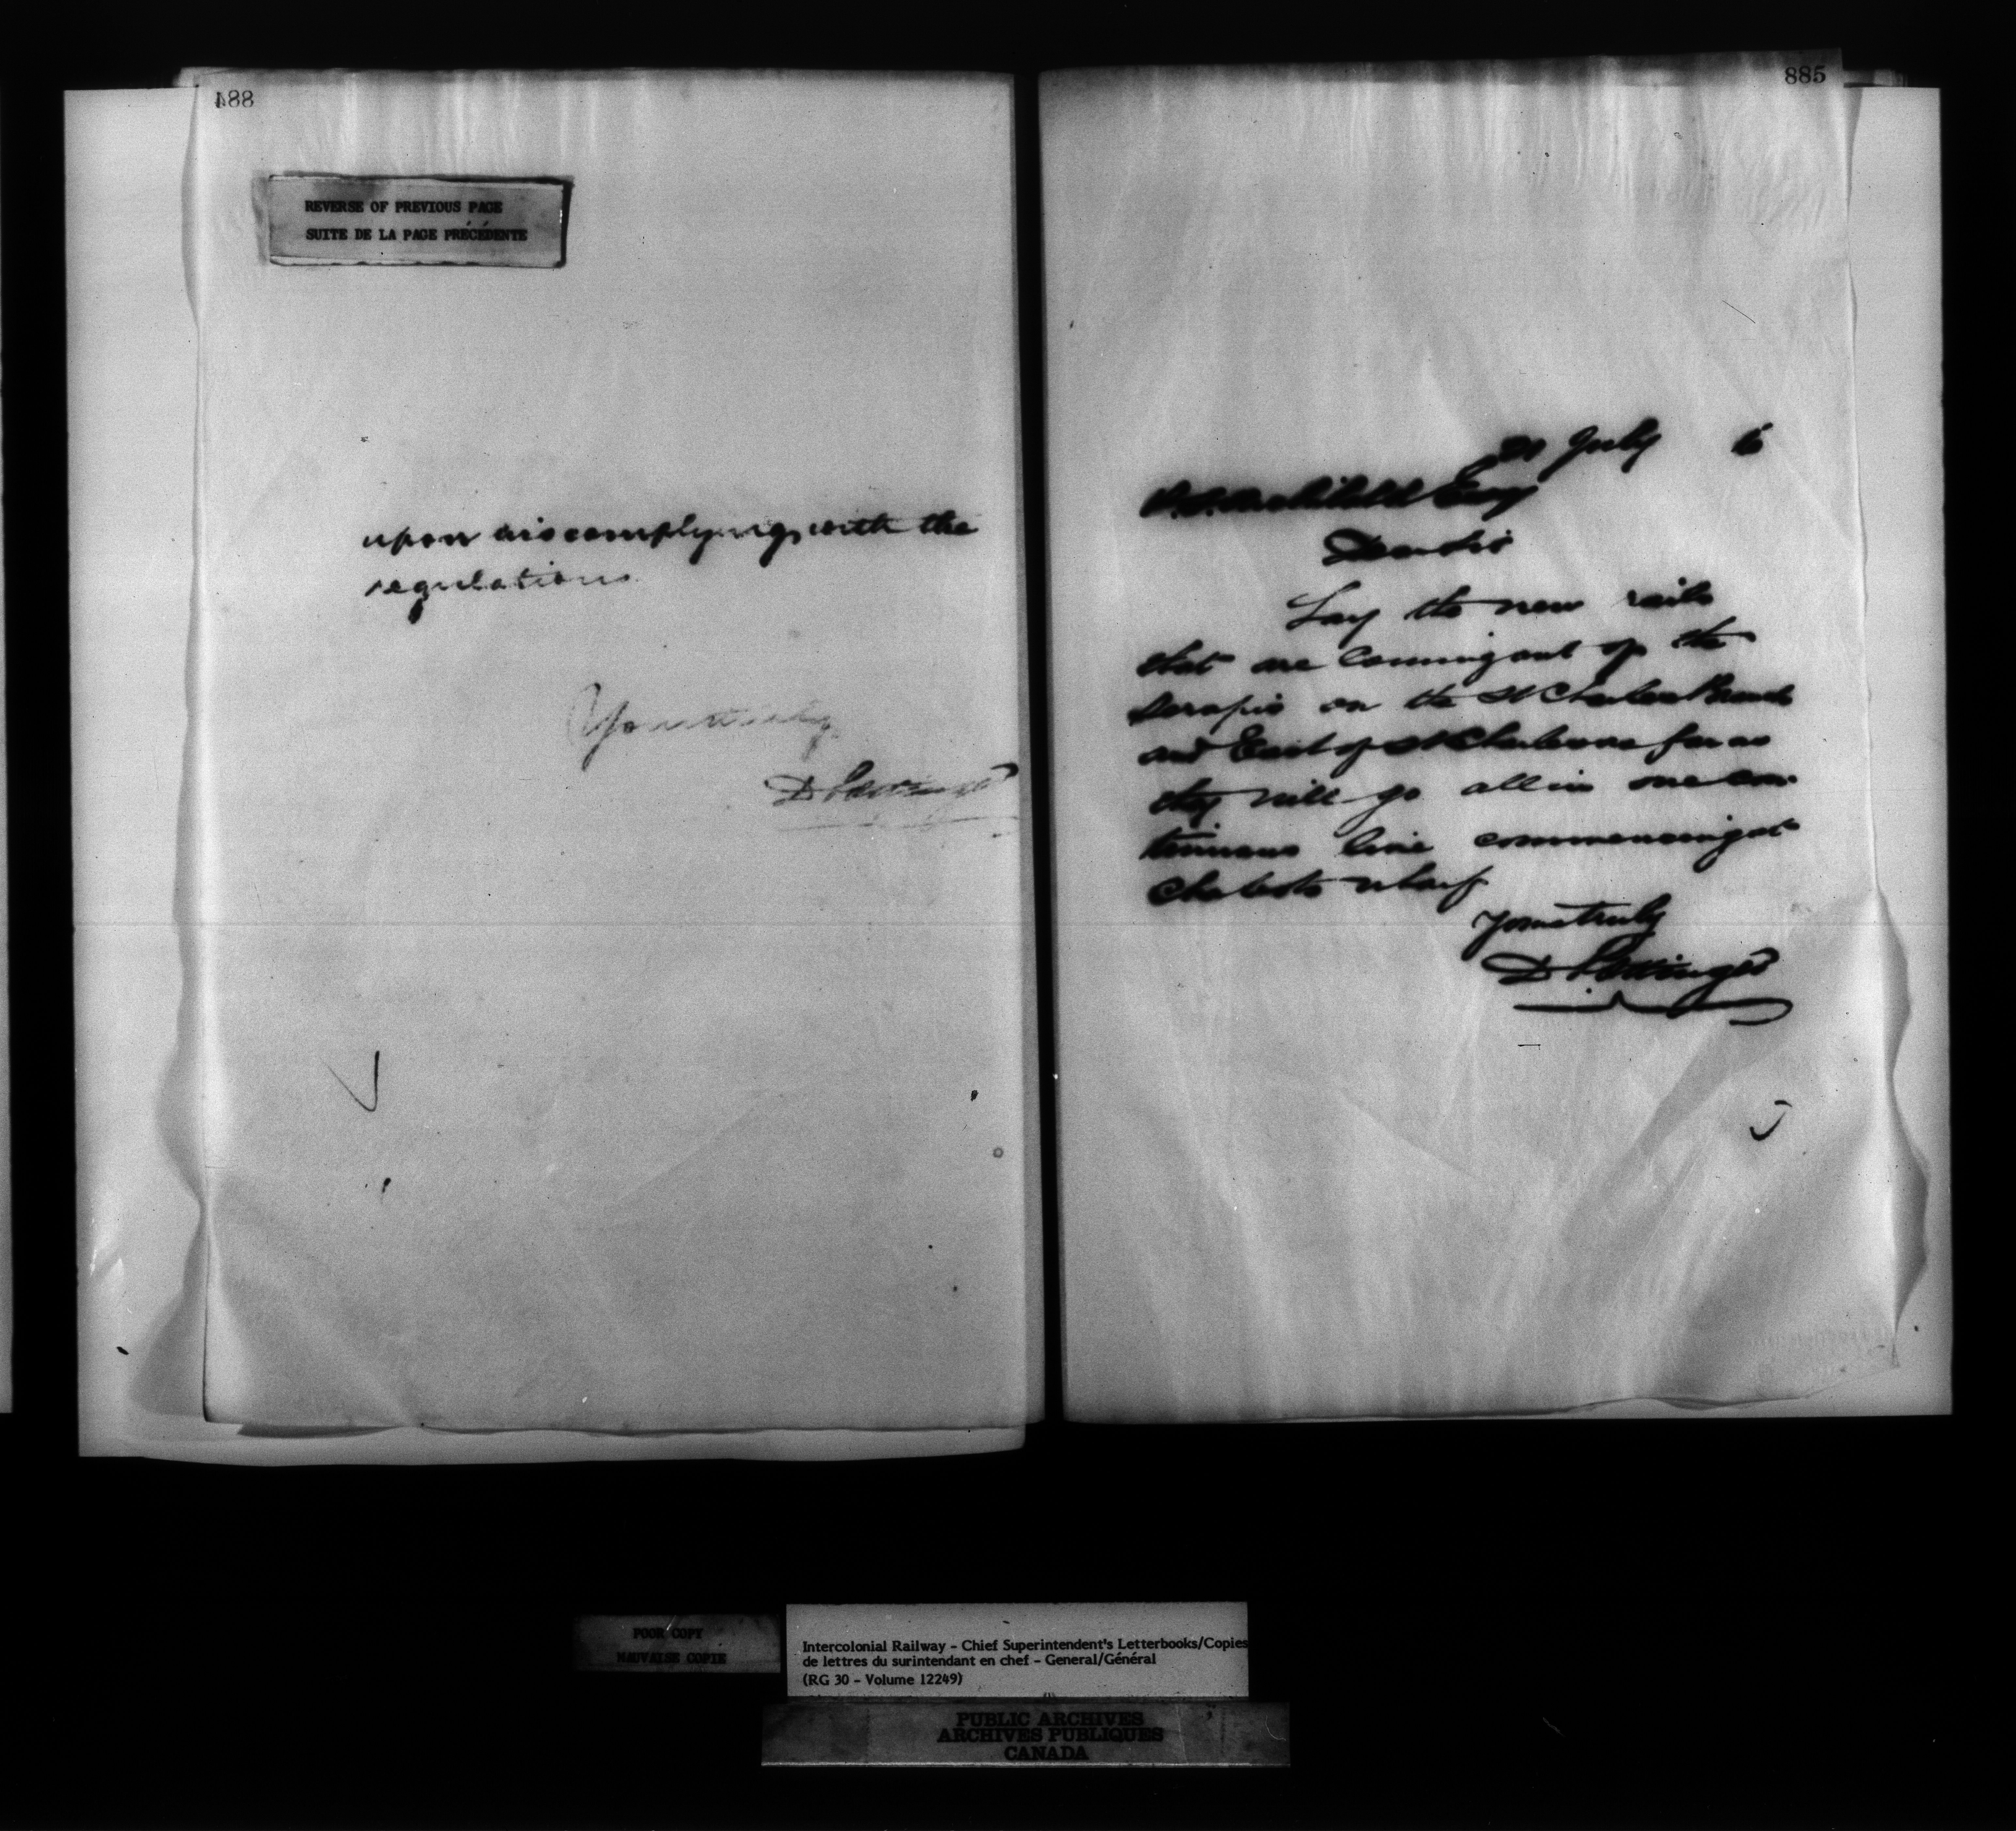 884
REVERSE OF PREVIOUS PAGE
SUITE DE LA PAGE PRÉCÉDENTE
upon his complying with the
regulations
Yours truly
D Pottinger
885
July
P.S. Archibald Esq
Dear Sir
Lay the new rails
that are coming out of the
on the St Charles Branch
and East of St Charles as far as
they will go all in one con
tinuous line commencing at
wharf
Yours truly
D Pottinger
POOR COPY
MAUVAISE COPIE
Intercolonial Railway - Chief Superintendent's Letterbooks/Copies
de lettres du surintendant en chef - General/Général
(RG 30 - Volume 12249)
PUBLIC ARCHIVES
ARCHIVES PUBLIQUES
CANADA